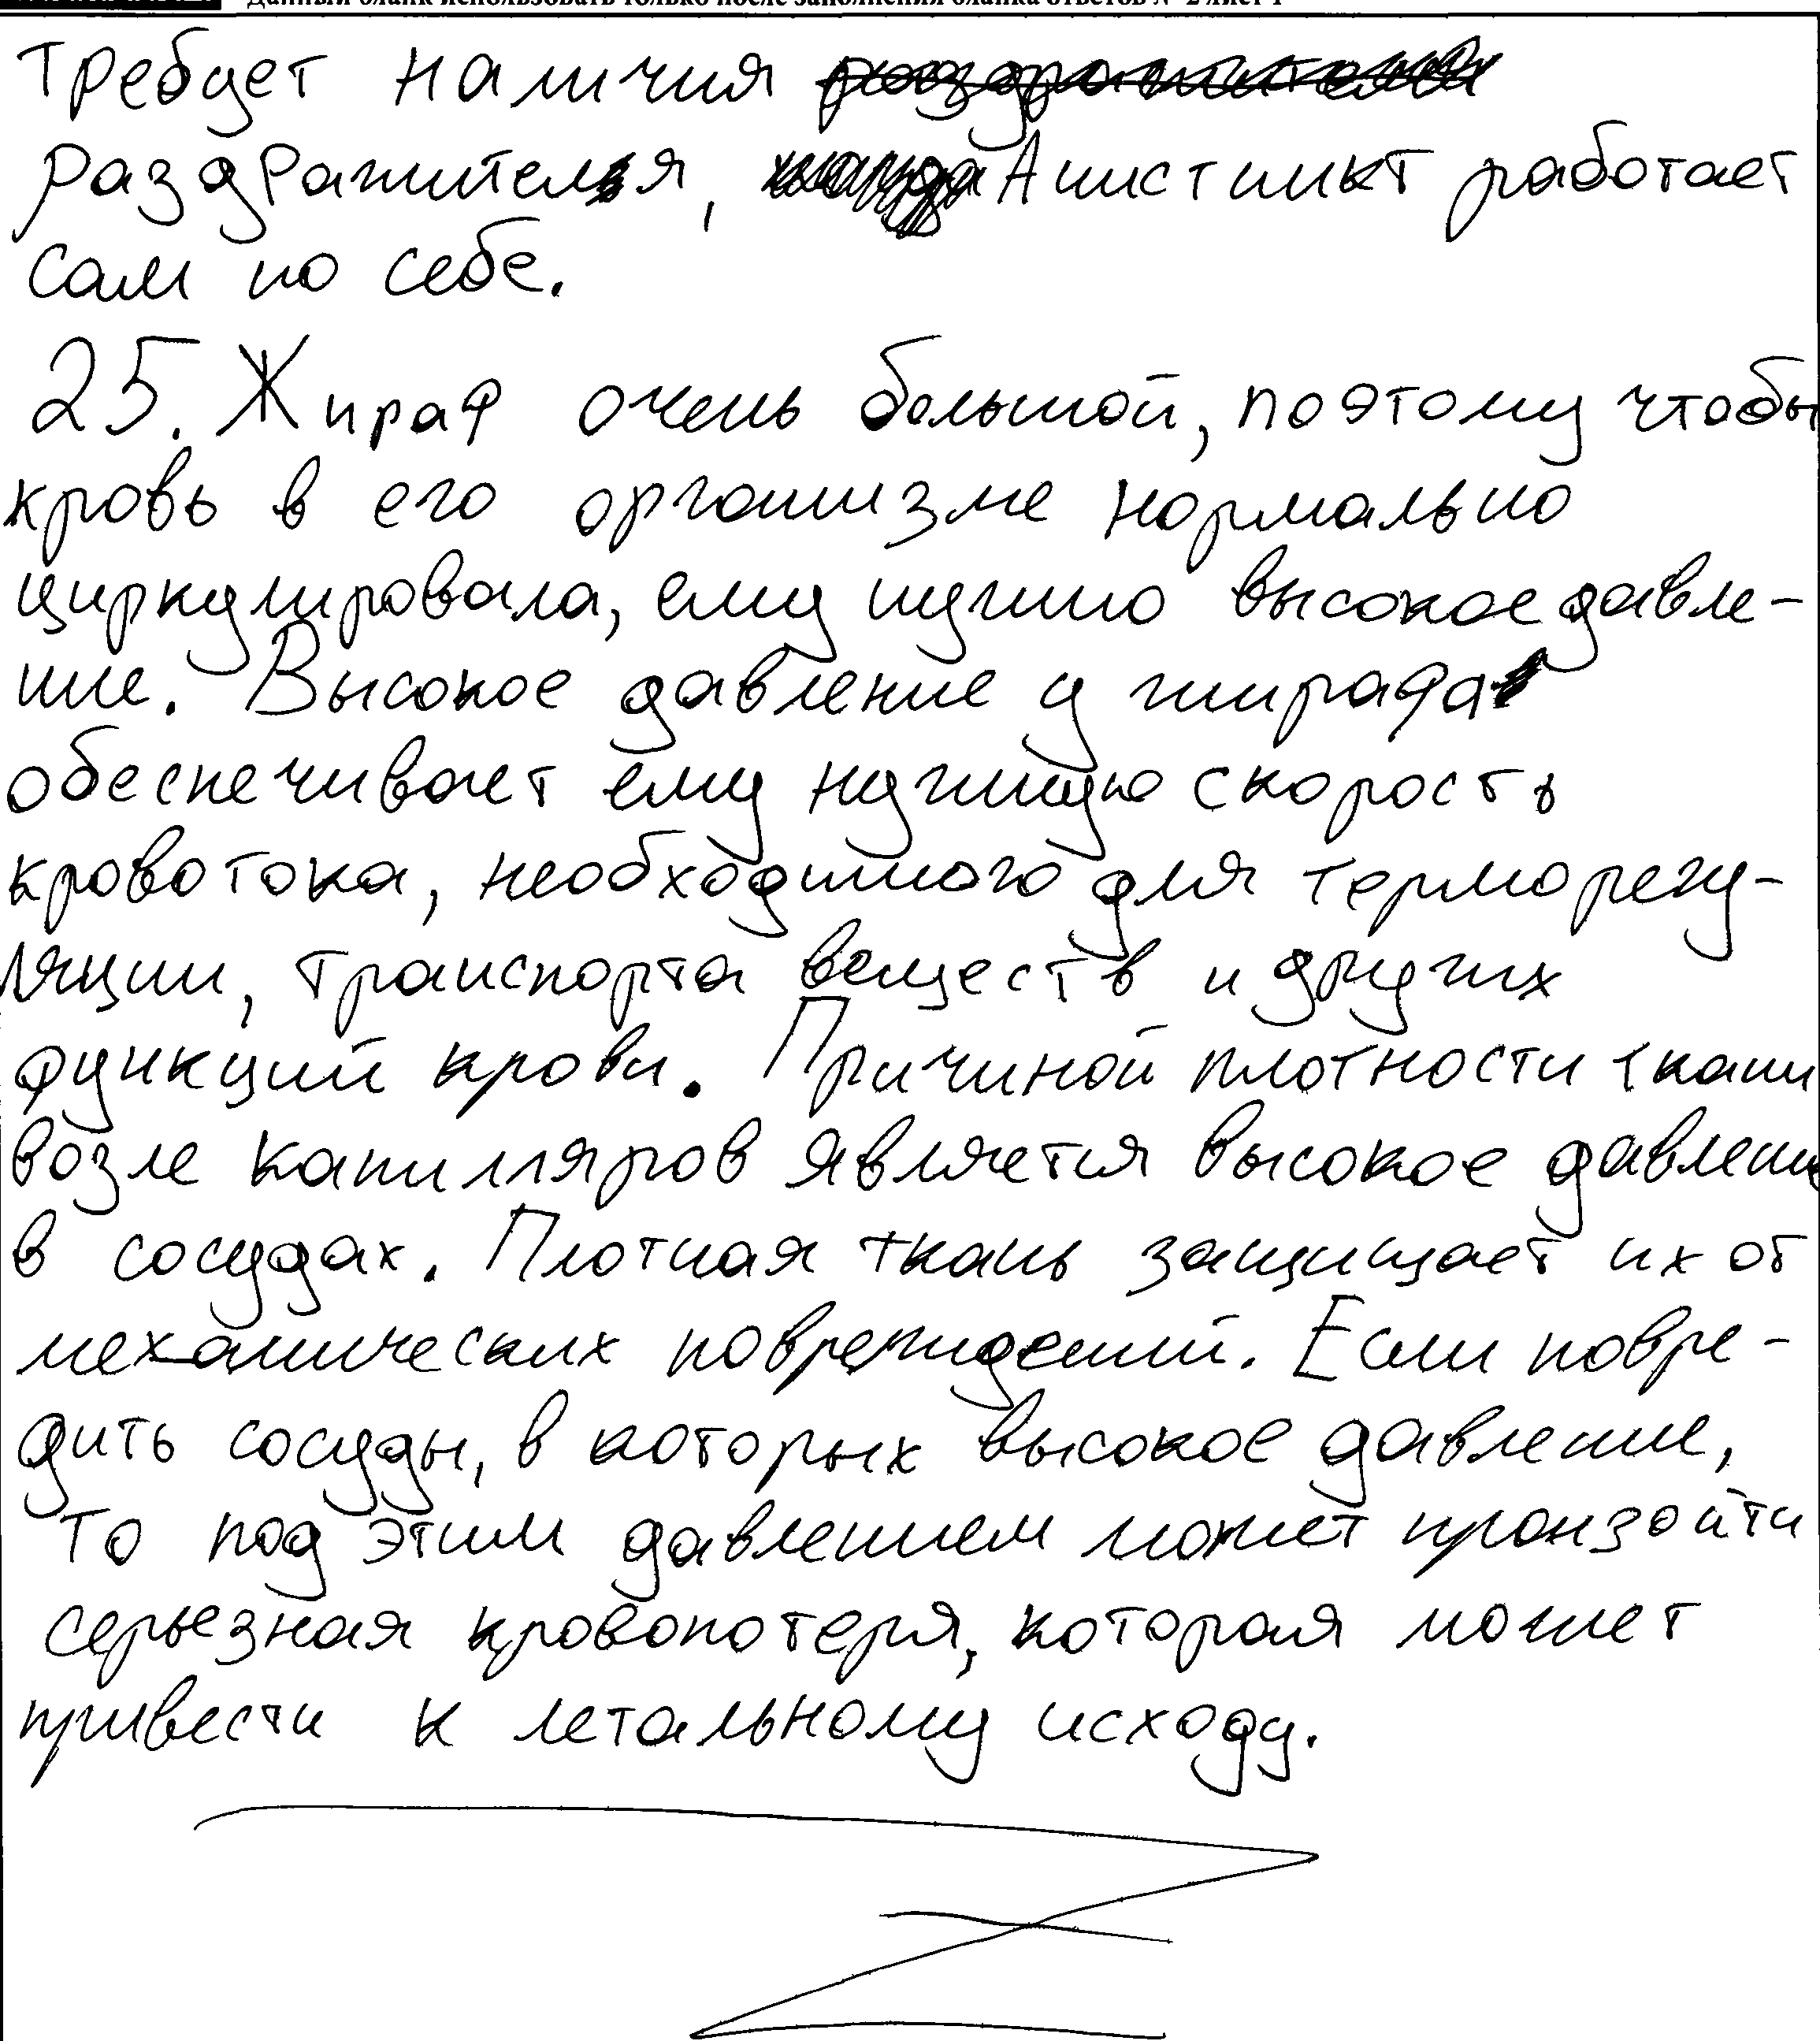 Данный бланк использовать только после заполнения бланка ответов № 2 лист 1
требует наличия
раздражителя, А инстинкт работает
сам по себе.
25. Жираф очень большой, поэтому чтобы
кровь в его организме нормально
циркулировала, ему нужно высокое давле-
ние. Высокое давление у жирафа
обеспечивает ему нужную скорость
кровотока, необходимого для терморегу-
ляции, транспорта веществ и других
функций крови. Причиной плотности ткани
возле капилляров является высокое давление
в сосудах. Плотная ткань защищает их от
механических повреждений. Если повре-
дить сосуды, в которых высокое давление,
то под этим давлением может произойти
серьезная кровопотеря, которая может
привести к летальному исходу.